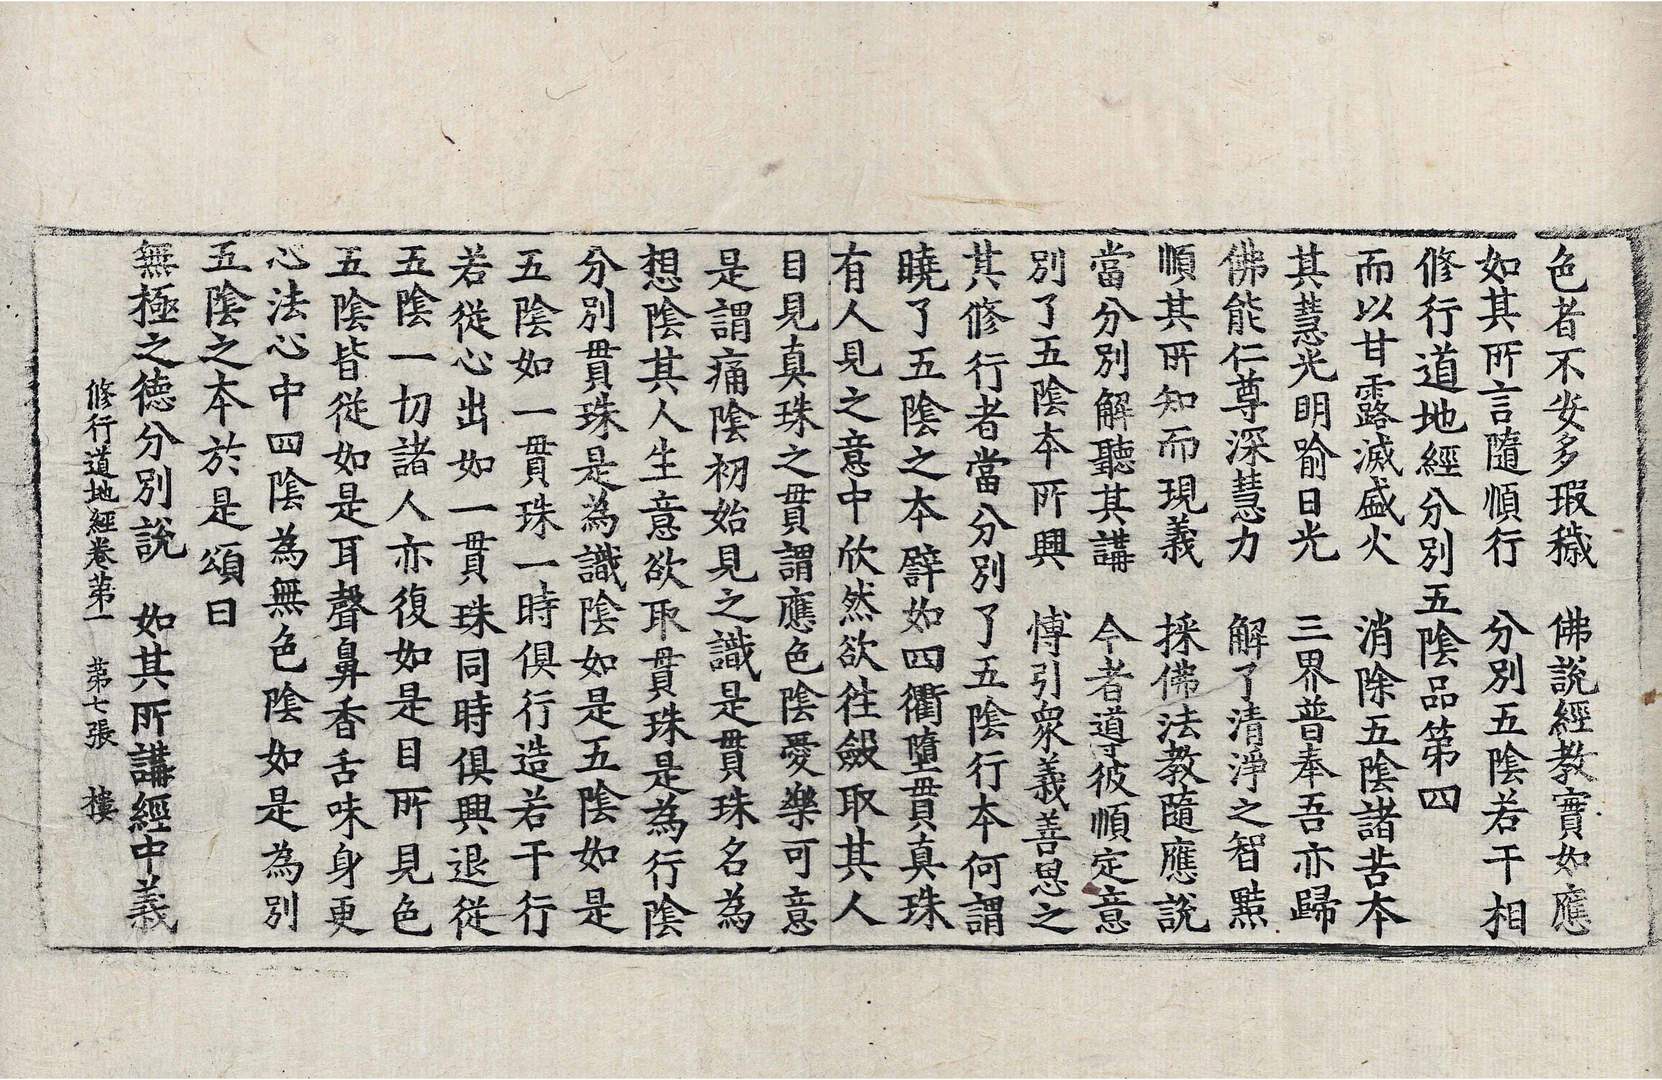 色者不安多瑕穢　佛說經教實如應
如其所言隨順行　分別五陰若干相
修行道地經分別五陰品第四
而以甘露滅盛火　消除五陰諸苦本
其慧光明喻日光　三界普奉吾亦歸
佛能仁尊深慧力　解了清淨之智黠
順其所知而現義　採佛法教隨應說
當分別解聽其講　今者道彼順定意
別了五陰本所興　愽引衆義善思之
其修行者當分別了五陰行本何謂
曉了五陰之本譬如四衢墮貫真珠
有人見之意中欣然欲往斂取其人
目見真珠之貫謂應色陰愛樂可意
是謂痛陰初始見之識是貫珠名為
想陰其人生意欲取貫珠是為行陰
分別貫珠是為識陰如是五陰如是
五陰如一貫珠一時俱行造若干行
若從心出如一貫珠同時俱興退從
五陰一切諸人亦復如是目所見色
五陰皆從如是耳聲鼻香舌味身更
心法心中四陰為無色陰如是為別
五陰之本於是頌曰
無極之德分別說　如其所講經中義
修行道地經卷第一　第七張　樓